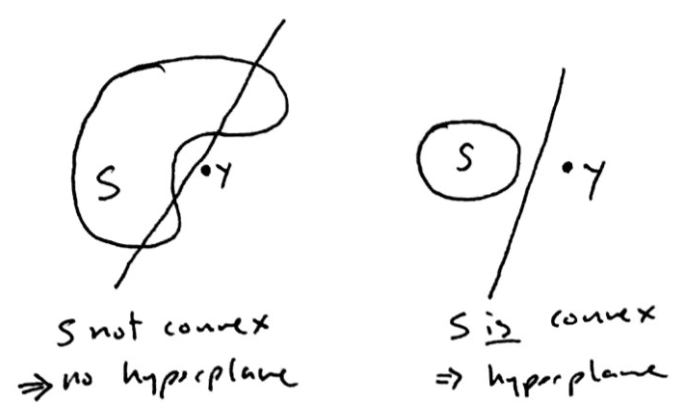 S
y
S not convex
⇒ no hyperplane
S
y
S is convex
⇒ hyperplane